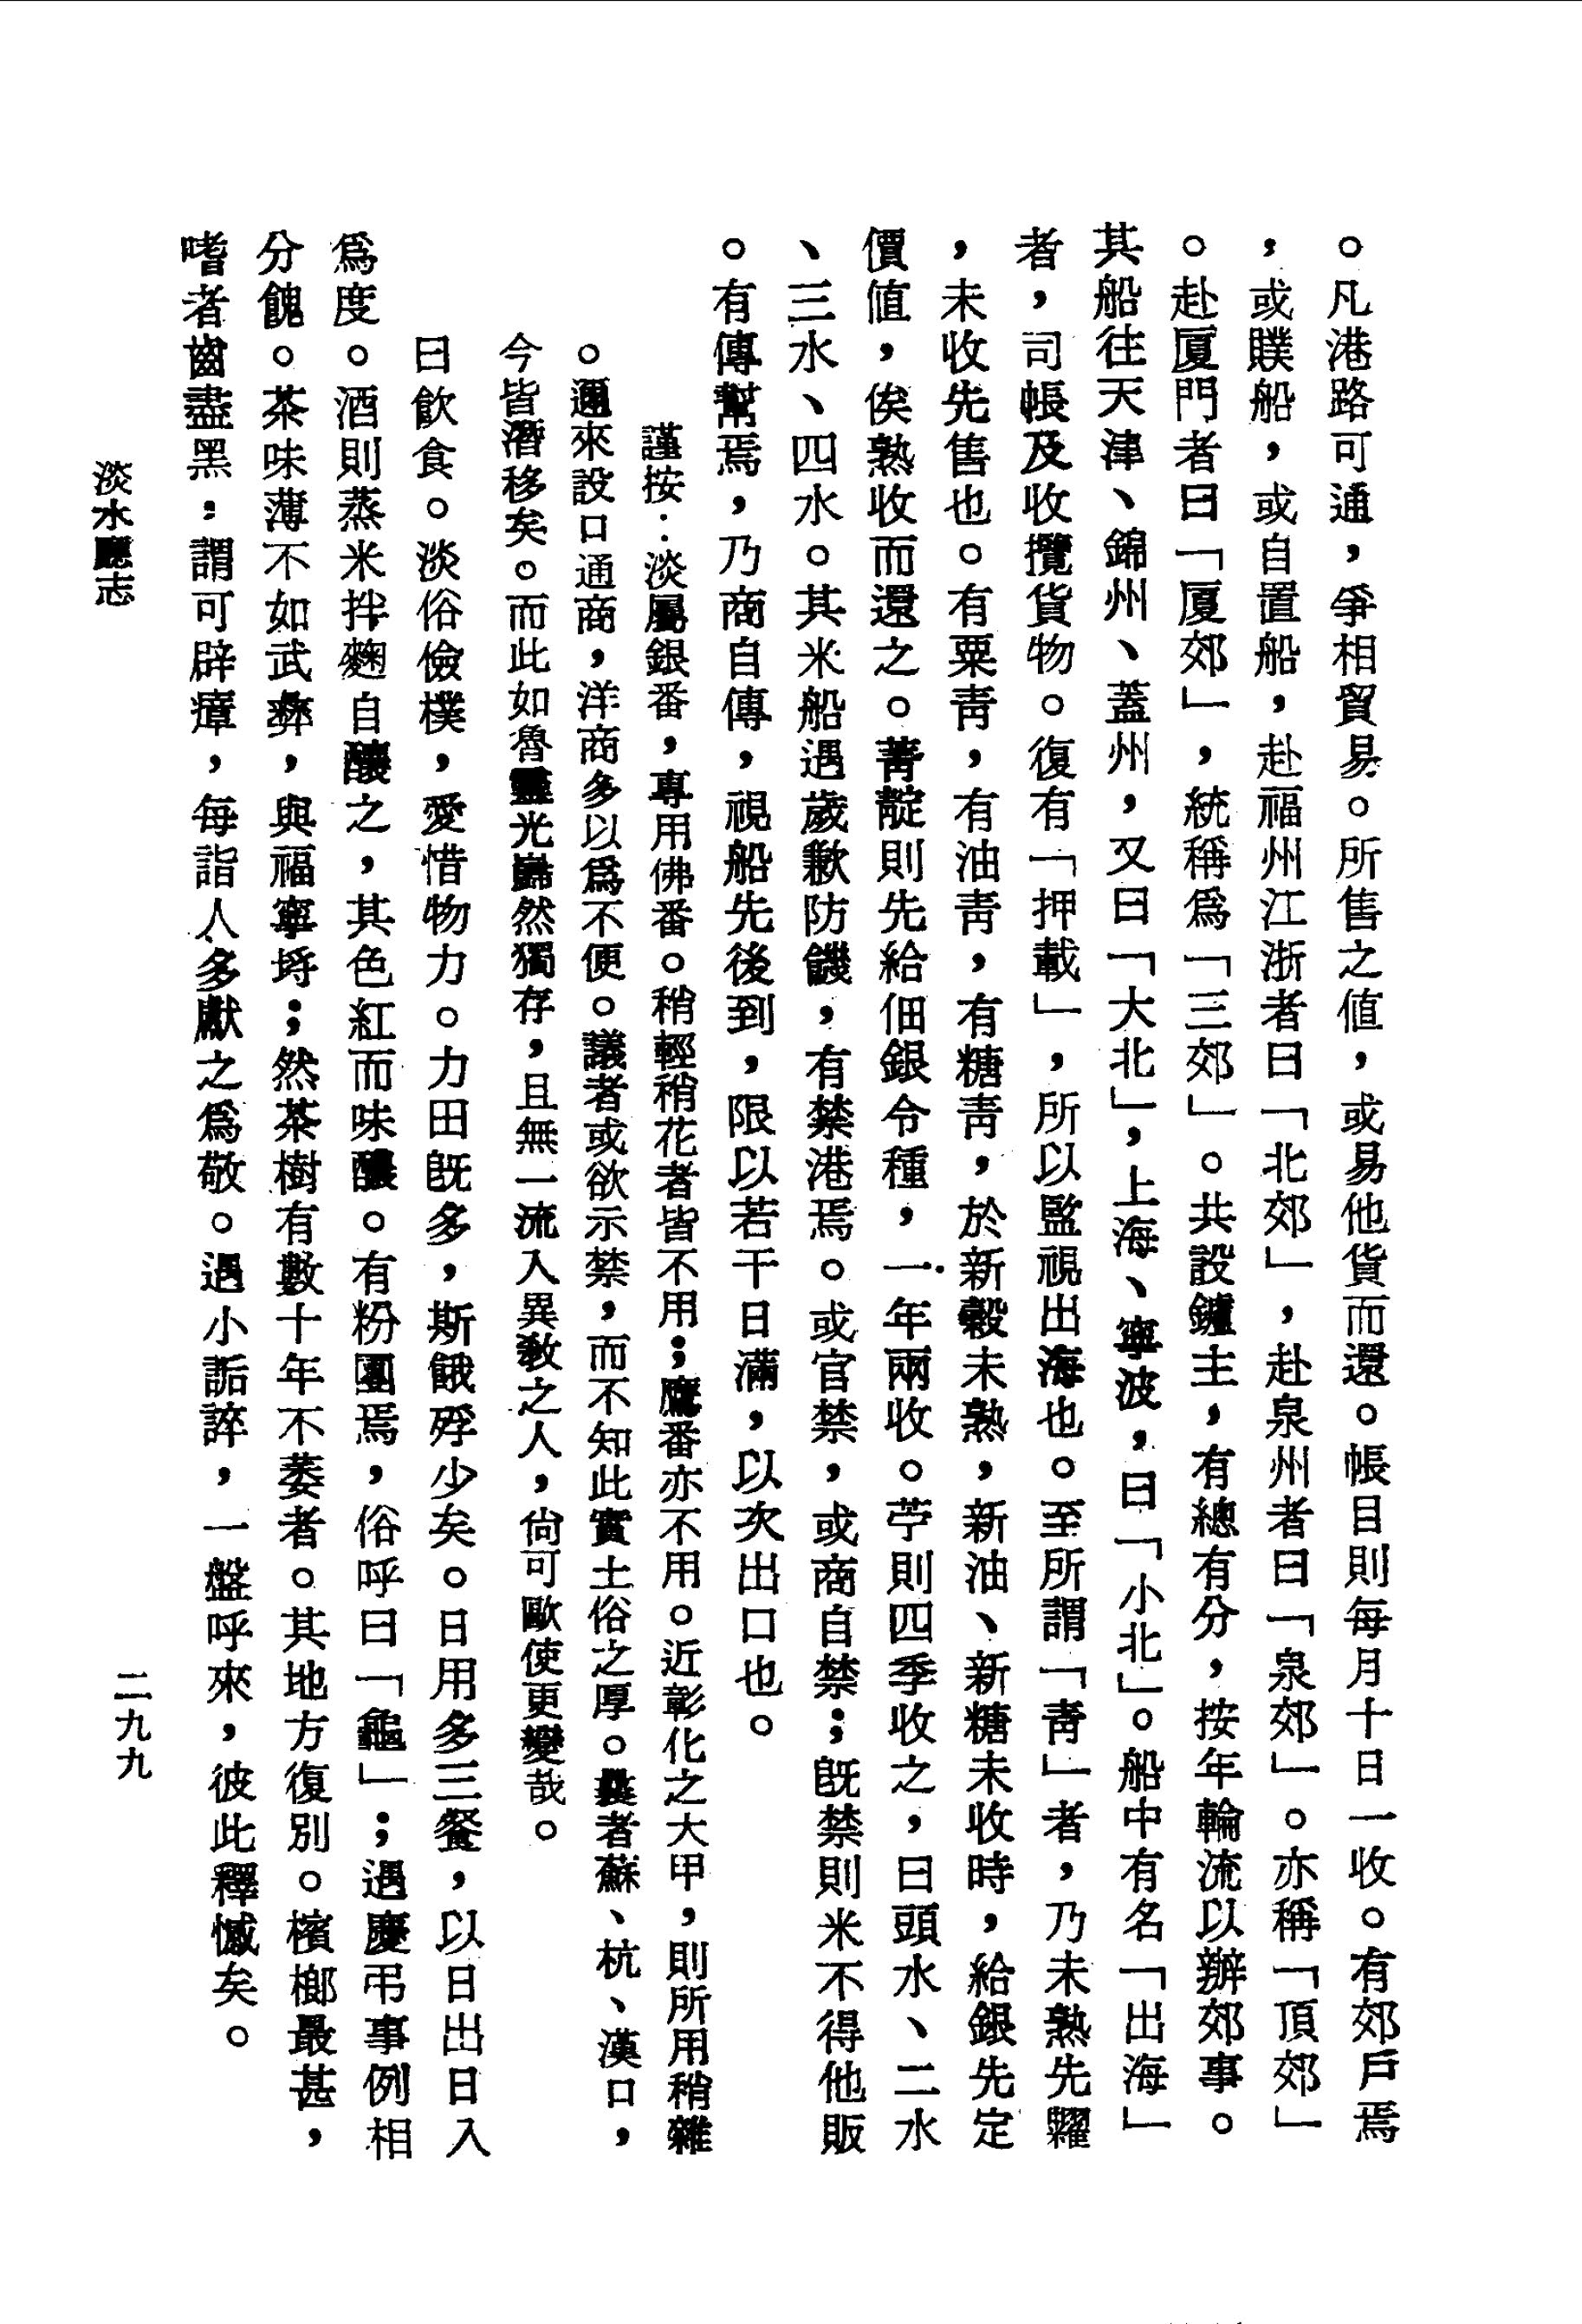 。凡港路可通，爭相貿易。所售之值，或易他貨而還。帳目則每月十日一收。有郊戶焉
，或贌船，或自置船，赴福州江浙者曰「北郊」，赴泉州者曰「泉郊」。亦稱「頂郊」
。赴厦門者曰「厦郊」，統稱爲「三郊」。共設鑪主，有總有分，按年輪流以辦郊事。
其船往天津、錦州、蓋州，又曰「大北」，上海、寧波，曰「小北」。船中有名「出海」
者，司帳及收攬貨物。復有「押載」，所以監視出海也。至所謂「青」者，乃未熟先糶
，未收先售也。有粟青，有油青，有糖青，於新穀未熟，新油、新糖未收時，給銀先定
價值，俟熟收而還之。菁靛則先給佃銀令種，一年兩收。苧則四季收之，曰頭水、二水
、三水、四水。其米船遇歲歉防饑，有禁港焉。或官禁，或商自禁；旣禁則米不得他販
。有傳幫焉，乃商自傳，視船先後到，限以若干日滿，以次出口也。
謹按：淡屬銀番，專用佛番。稍輕稍花者皆不用；鷹番亦不用。近彰化之大甲，則所用稍雜
。邇來設口通商，洋商多以爲不便。議者或欲示禁，而不知此實土俗之厚。曩者蘇、杭、漢口，
今皆潛移矣。而此如魯靈光巋然獨存，且無一流入異敎之人，尙可歐使更變哉。
曰飮食。淡俗儉樸，愛惜物力。力田旣多，斯餓殍少矣。日用多三餐，以日出日入
爲度。酒則蒸米拌麴自釀之，其色紅而味醲。有粉團焉，俗呼曰「龜」；遇慶弔事例相
分餽。茶味薄不如武彝，與福寧埒；然茶樹有數十年不萎者。其地方復別。檳榔最甚，
嗜者齒盡黑：謂可辟瘴，每詣人多獻之爲敬。遇小詬誶，一盤呼來，彼此釋憾矣。
淡水廳志
二九九